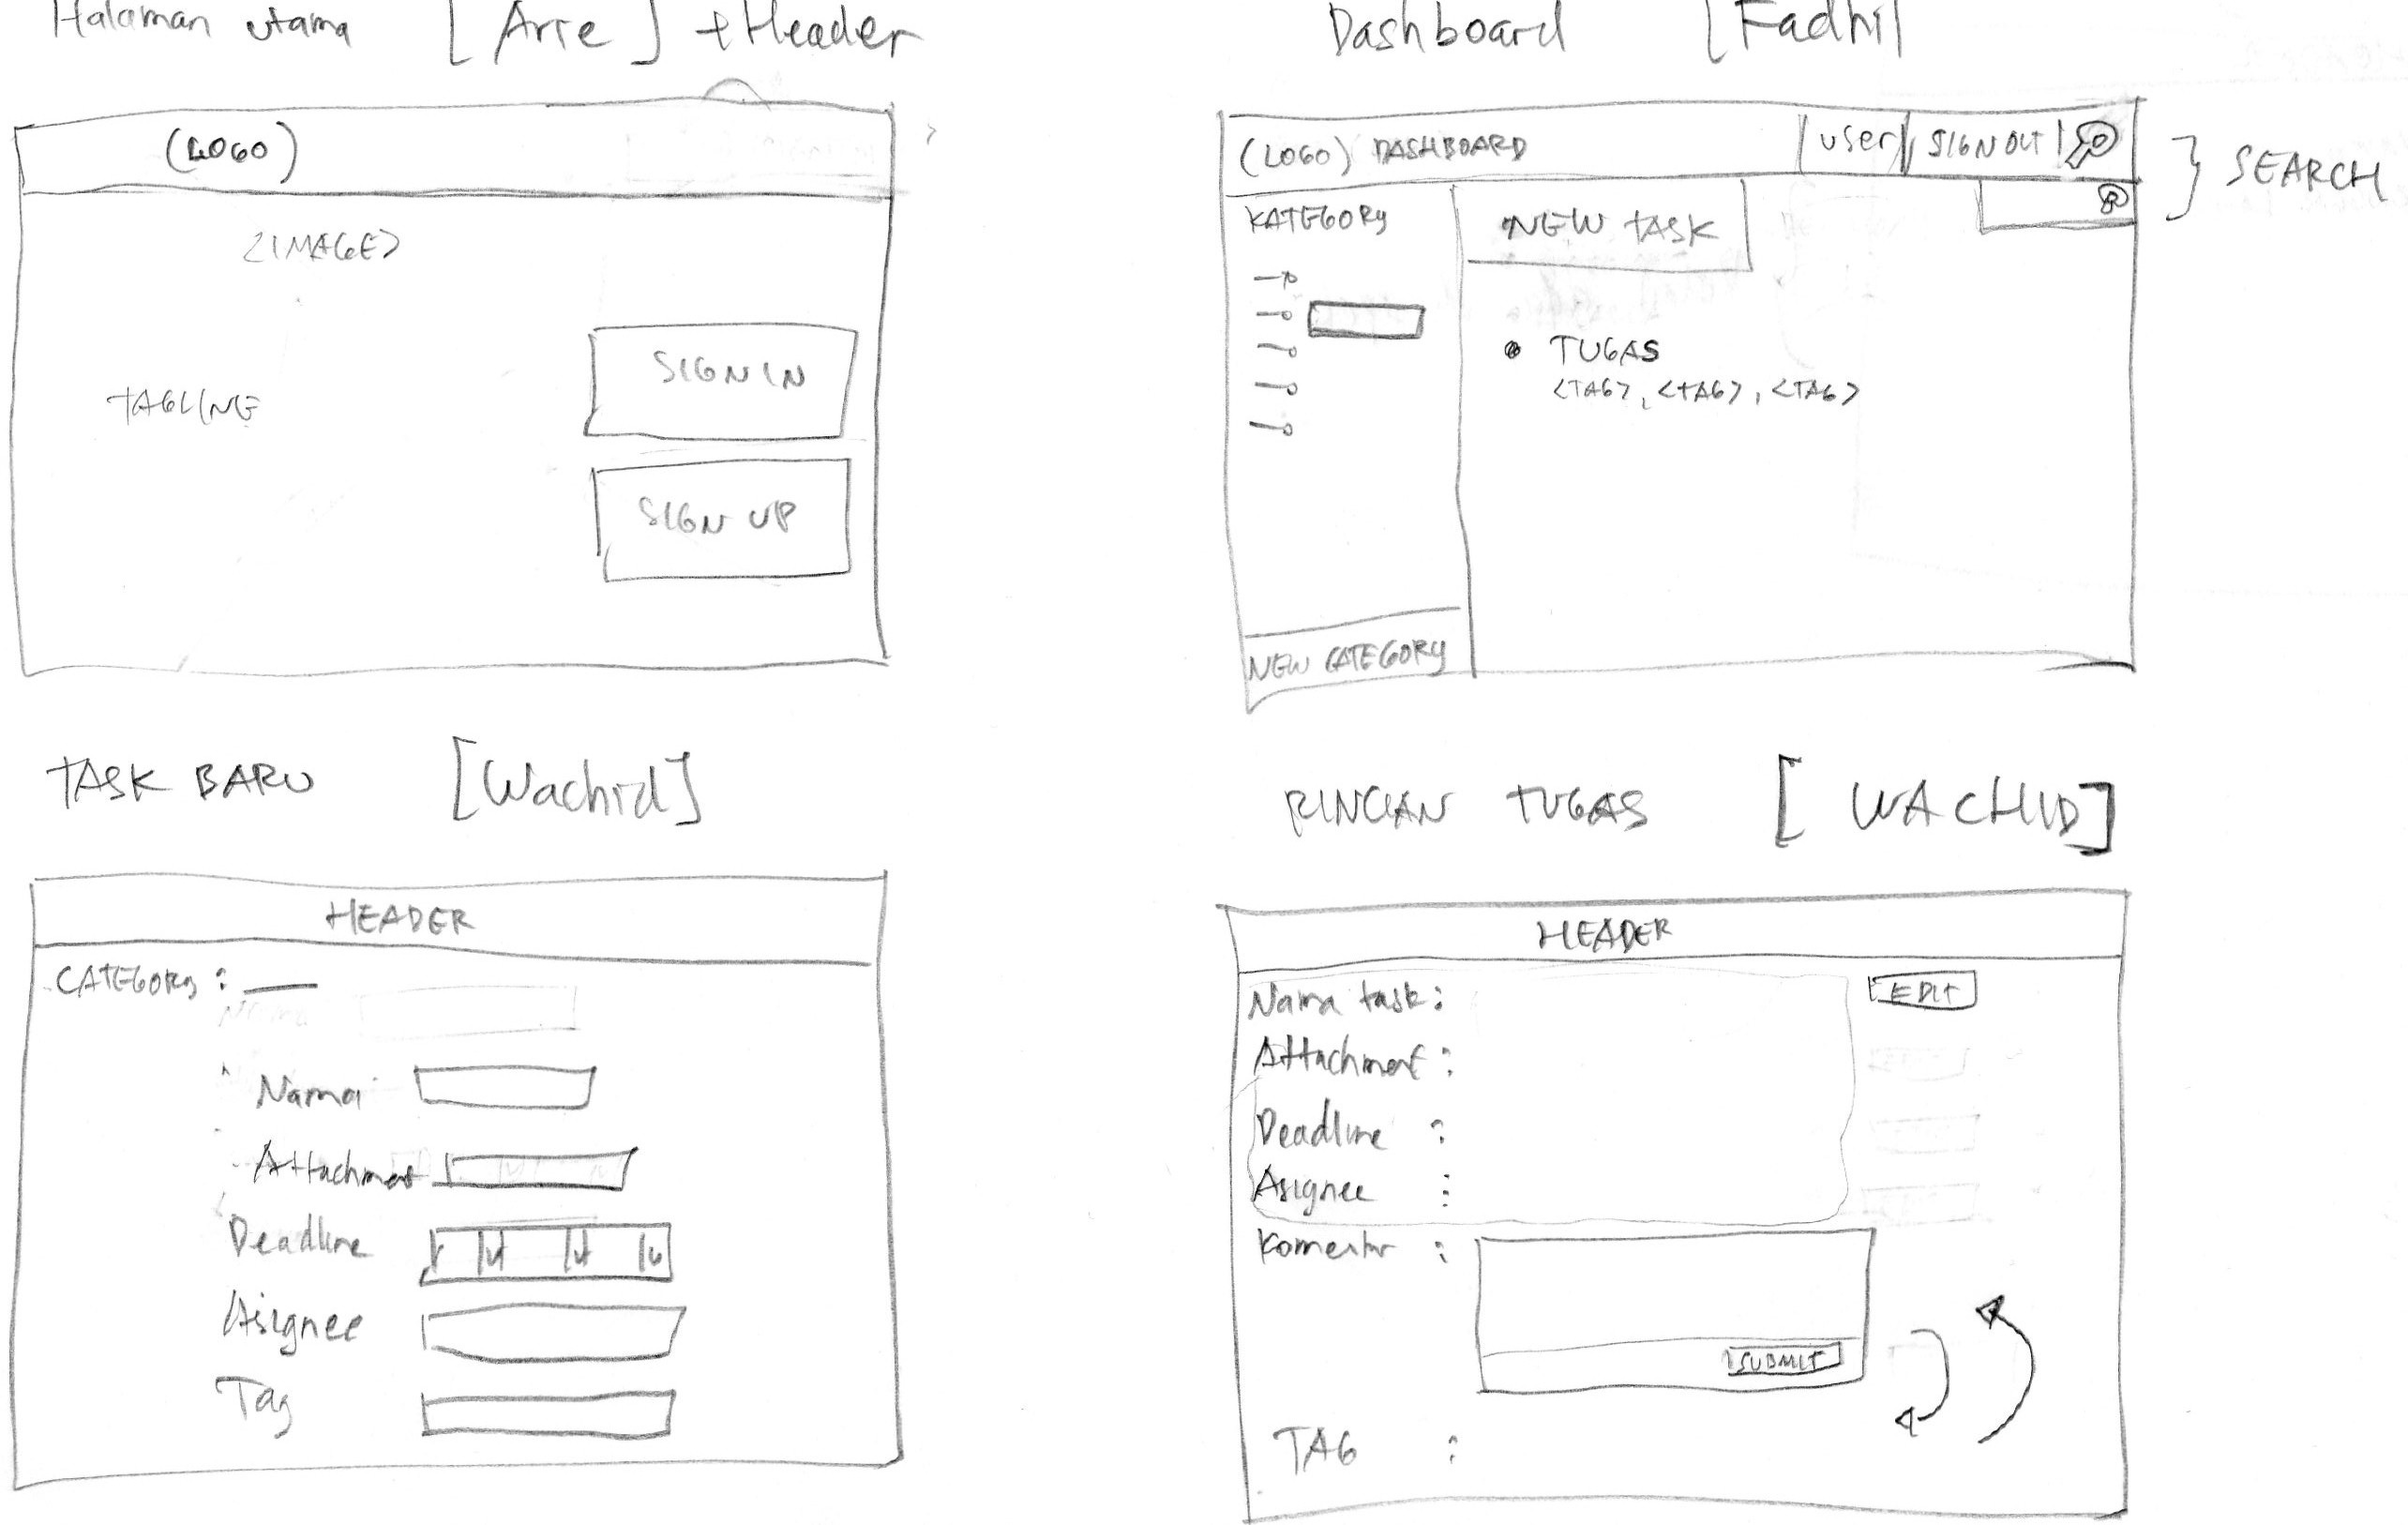 Halaman utama [Arie] + Header
(LOGO)
<IMAGE>
TAGLINE
SIGN IN
SIGN UP
Dashboard [Fadhil
(LOGO) DASHBOARD user SIGN OUT
SEARCH
KATEGORY
NEW TASK
TUGAS
<TAG>, <TAG>, <TAG>
NEW CATEGORY
TASK BARU [Wachid]
HEADER
CATEGORY :
Nama
Nama
Attachment
Deadline
Asignee
Tag
RINCIAN TUGAS [WACHID]
HEADER
Nama task : EDIT
Attachment :
Deadline :
Asignee :
Komentar :
SUBMIT
TAG :